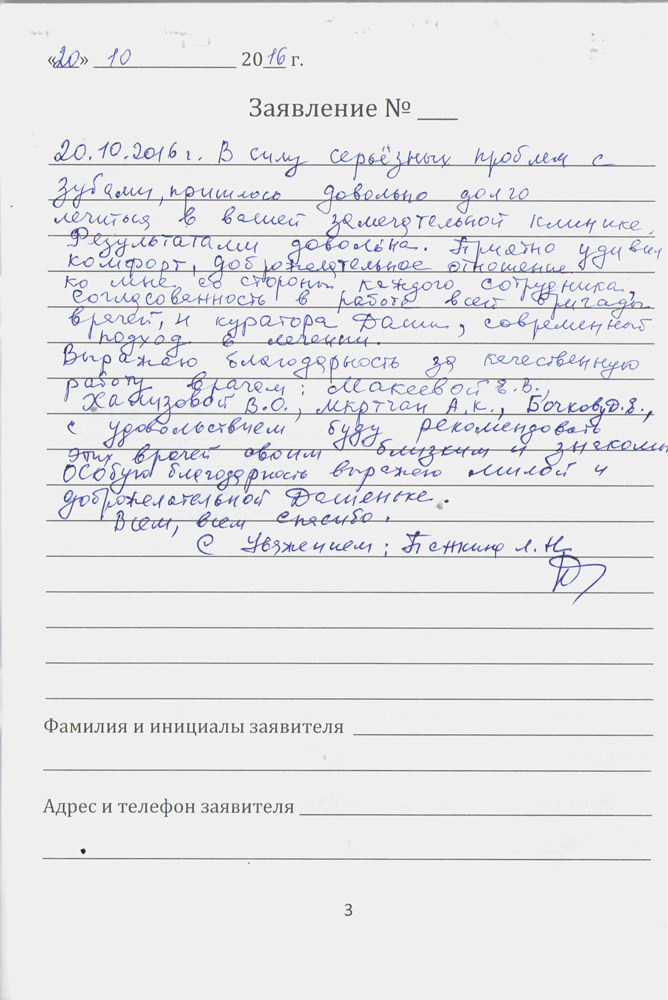 «20» 10 2016 г.
Заявление № ___
20.10.2016 г. В силу серьёзных проблем с
зубами, пришлось довольно долго
лечиться в вашей замечательной клинике.
Результатами довольна. Приятно удивил
комфорт, доброжелательное отношение
ко мне со стороны каждого сотрудника,
согласованность в работе всей бригады
врачей, и куратора Даши, современный
подход в лечении.
Выражаю благодарность за качественную
работу врачем: Макеевой Е.В.,
В.О., Мкртчан А.К., Бочкову Д.В.,
с удовольствием буду рекомендовать
этих врачей своим близким и знакомым
Особую благодарность выражаю милой и
доброжелательной Дашеньке.
Всем, всем спасибо.
С уважением: Л.Н.
Фамилия и инициалы заявителя
Адрес и телефон заявителя
3